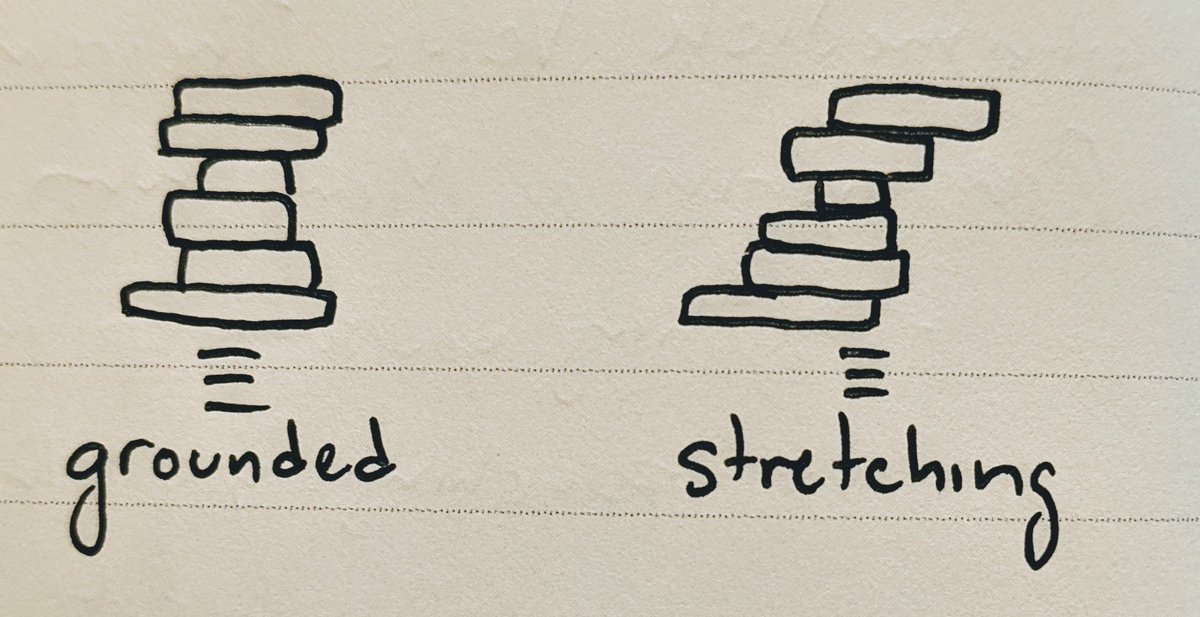 grounded
stretching